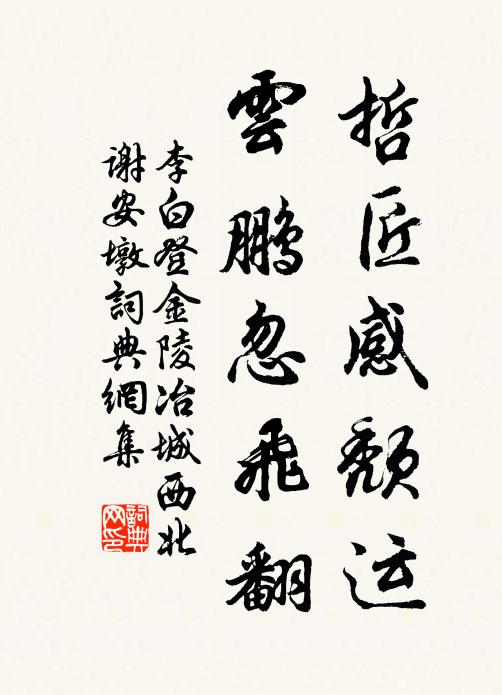 哲匠感颓运
雲鵬忽飛翻
李白登金陵冶城西北
谢安墩詞典網集
詞典网印